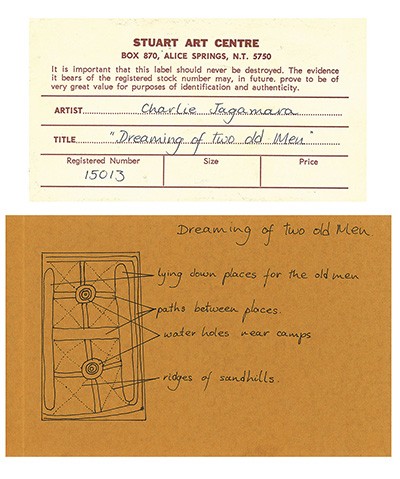 STUART ART CENTRE
BOX 870, ALICE SPRINGS, N.T. 5750
It is important that this label should never be destroyed. The evidence
it bears of the registered stock number may, in future. prove to be of
very great value for purposes of identification and authenticity.
ARTIST Charlie Jagamara
TITLE "Dreaming of two old Men"
Registered Number Size Price
15013
Dreaming of two old Men
lying down places for the old men
paths between places.
water holes near camps
ridges of sandhills.